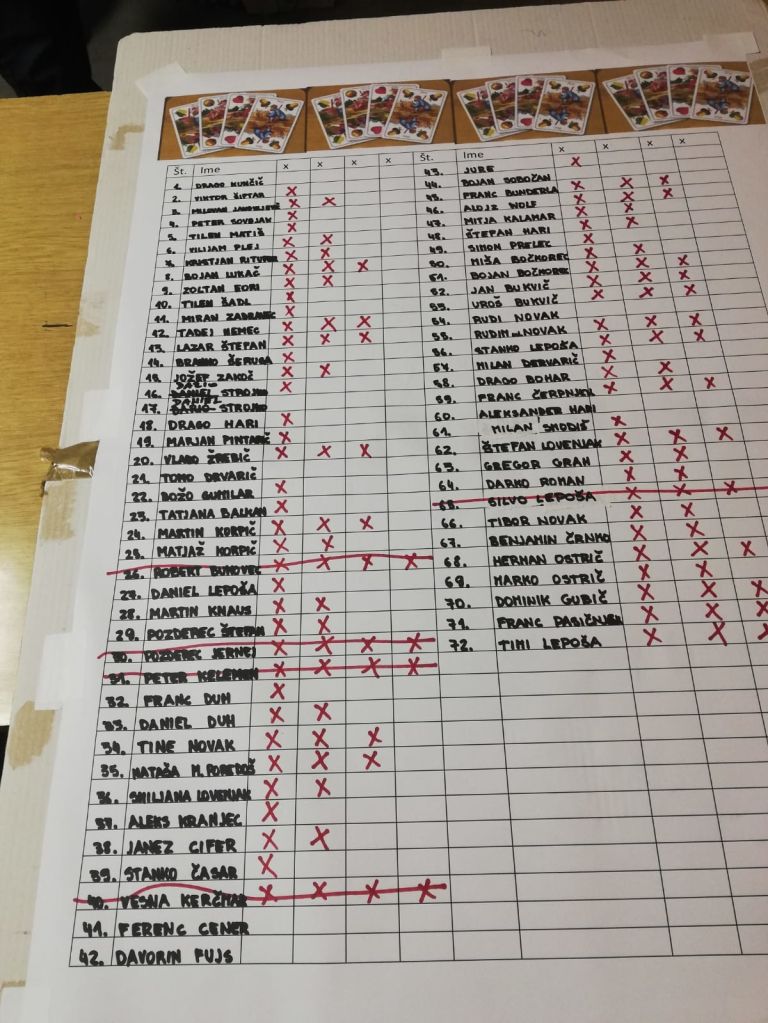 Št. Ime x x x x
1. DRAGO KUNČIČ
2. VIKTOR ŠIFTAR X
3. X X
4. PETER X
5. TILEN MATIŠ X
6. VILIJAM PLEJ X X
7. KRISTJAN X X
8. BOJAN LUKAČ X X X
9. ZOLTAN X X
10. TILEN ŠADL X
11. MIRAN ZADRAVEC X
12. TADEJ NEMEC X X X
13. LAZAR ŠTEFAN X X X
14. BRANKO ŠERUGA X
15. JOŽEF ZAKOČ X X
16. DARIO STROJKO X
17. DANIEL STROJKO
18. DRAGO HARI X
19. MARJAN PINTARIČ X
20. VLADO ŽREBIČ X X X
21. TOMO DRVARIČ
22. BOŽO GUMILAR X
23. TATJANA BALKAN X
24. MARTIN KORPIČ X X X
25. MATJAŽ KORPIČ X X
26. ROBERT BUKOVEC X X X X
27. DANIEL LEPOŠA X
28. MARTIN KNAUS X X
29. POZDEREC ŠTEFAN X X
30. POZDEREC JERNEJ X X X X
31. PETER KELEMEN X X X X
32. FRANC DUH X
33. DANIEL DUH X X
34. TINE NOVAK X X X
35. NATAŠA M. POREDOŠ X X X
36. SMILJANA LOVENJAK X X
37. ALEKS KRANJEC X
38. JANEZ CIFER X X
39. STANKO ČASAR X
40. VESNA KERČMAR X X X X
41. FERENC CENER
42. DAVORIN FUJS
Št. Ime x x x x
43. JURE X
44. BOJAN SOBOČAN
45. FRANC BUNDERLA X X X
46. ALOJZ WOLF X X X
47. MITJA KALAMAR X X
48. ŠTEFAN HARI X X
49. SIMON PRELEC X
50. MIŠA BOČKOREC X X
51. BOJAN BOČKOREC X X X
52. JAN BUKVIČ X X X
53. UROŠ BUKVIČ X X X
54. RUDI NOVAK
55. RUDI NOVAK X X X
56. STANKO LEPOŠA X X X
57. MILAN DERVARIČ X
58. DRAGO BOHAR X X
59. FRANC ČERPNJEK X X X
60. ALEKSANDER HARI
61. MILAN SMODIŠ X
62. ŠTEFAN LOVENJAK X X X
63. GREGOR GRAH X X
64. DARKO ROMAN X X
65. SILVO LEPOŠA X X X
66. TIBOR NOVAK X X
67. BENJAMIN ČRNKO X X
68. HERMAN OSTRIČ X X X
69. MARKO OSTRIČ X X
70. DOMINIK GUBIČ X X X
71. FRANC PASIČNJEK X X X
72. TIMI LEPOŠA X X X